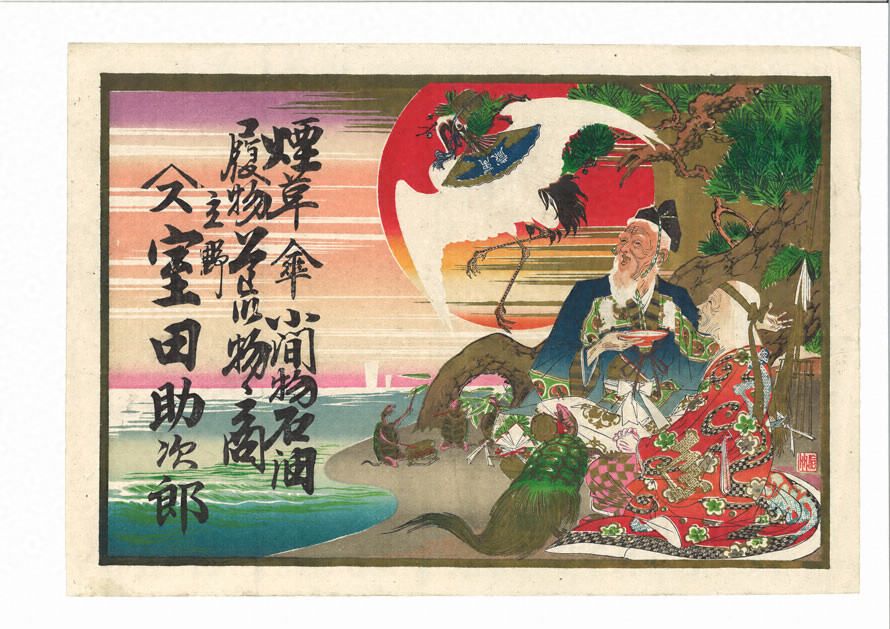 煙草 傘 小間物石油
履物 物々商
立野
ス 室田助次郎